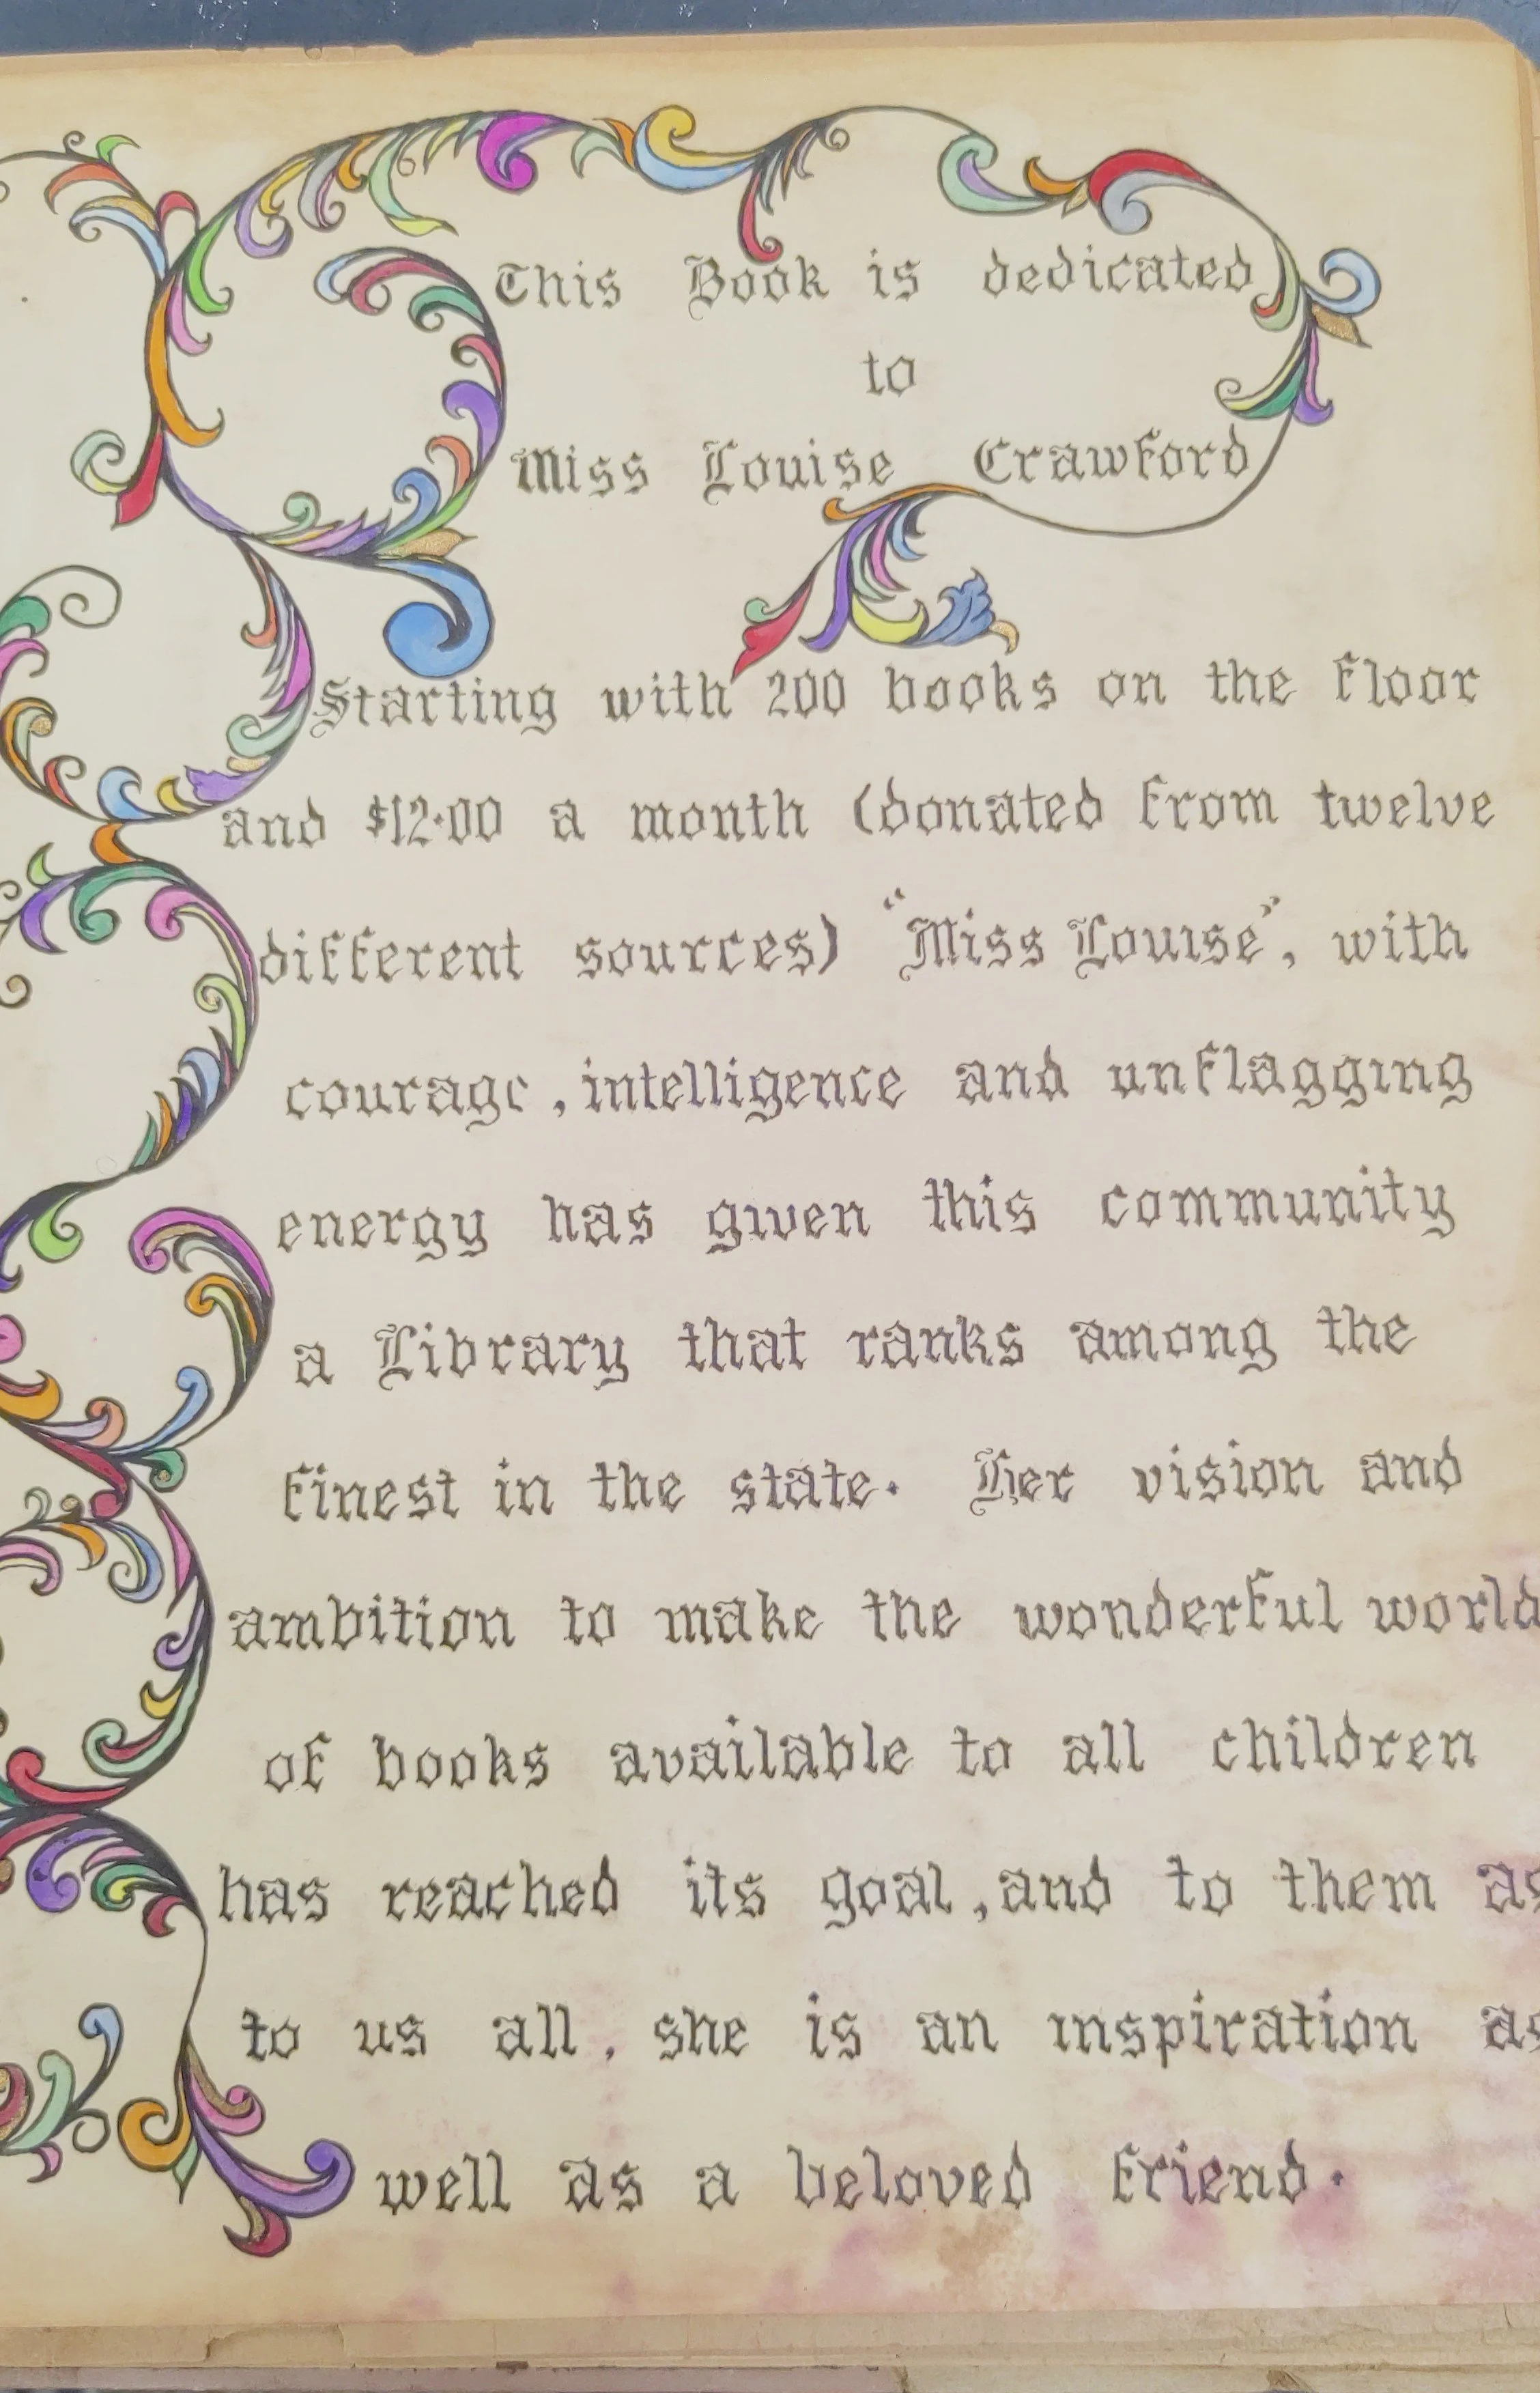 This Book is dedicated
to
Miss Louise Crawford
Starting with 200 books on the floor
and $12.00 a month (donated from twelve
different sources) "Miss Louise", with
courage, intelligence and unflagging
energy has given this community
a Library that ranks among the
finest in the state. Her vision and
ambition to make the wonderful world
of books available to all children
has reached its goal, and to them as
to us all, she is an inspiration as
well as a beloved friend.